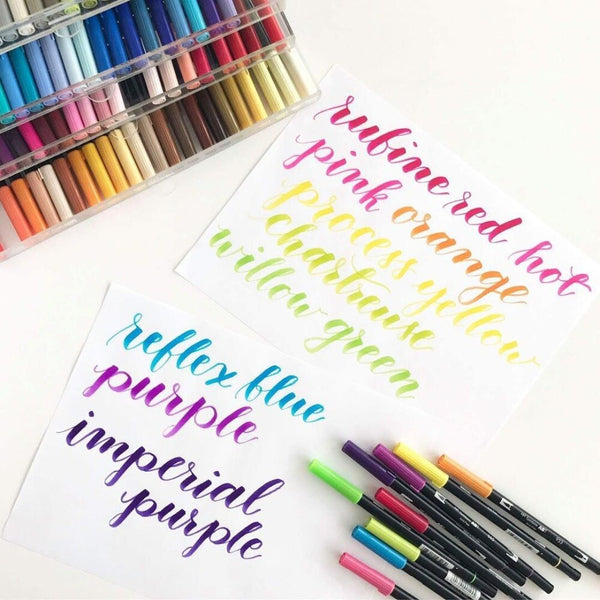 rubine red hot
pink orange
process yellow
chartreuse
willow green
reflex blue
purple
imperial
purple